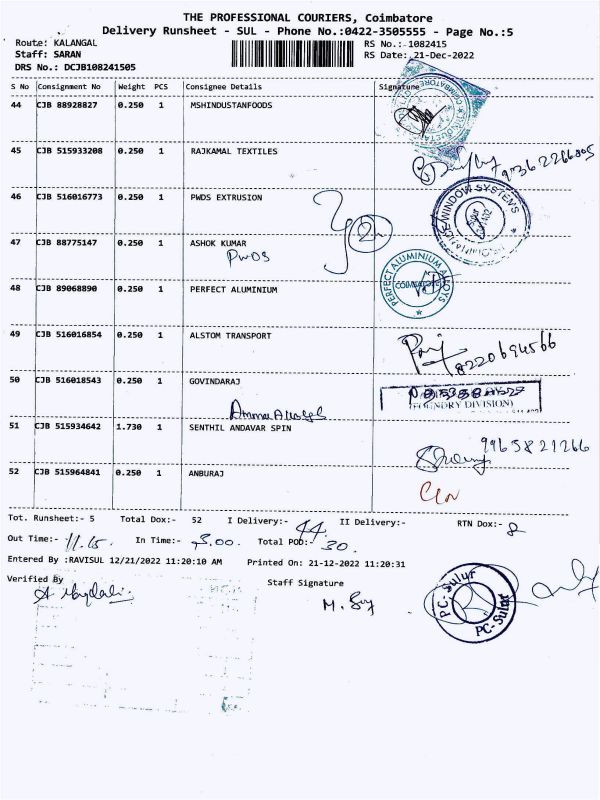 THE PROFESSIONAL COURIERS, Coimbatore
Delivery Runsheet - SUL - Phone No.:0422-3505555 - Page No.:5
Route: KALANGAL RS No.:- 1082415
Staff: SARAN RS Date: 21-Dec-2022
DRS No.: DCJB108241505
S No Consignment No Weight PCS Consignee Details Signature
44 CJB 88928827 0.250 1 MSHINDUSTANFOODS
45 CJB 515933208 0.250 1 RAJKAMAL TEXTILES
46 CJB 516016773 0.250 1 PWDS EXTRUSION
WINDOW SYSTEMS
47 CJB 88775147 0.250 1 ASHOK KUMAR
PWDS
48 CJB 89068890 0.250 1 PERFECT ALUMINIUM
PERFECT ALUMINIUM ALLOYS
COIMBATORE
49 CJB 516016854 0.250 1 ALSTOM TRANSPORT
8220694566
50 CJB 516018543 0.250 1 GOVINDARAJ
(FOUNDRY DIVISION)
51 CJB 515934642 1.730 1 SENTHIL ANDAVAR SPIN
9965821266
52 CJB 515964841 0.250 1 ANBURAJ
Tot. Runsheet:- 5 Total Dox:- 52 I Delivery:- 44 II Delivery:- RTN Dox:- 8
Out Time:- 11.15. In Time:- 3.00. Total POD:- 30.
Entered By :RAVISUL 12/21/2022 11:20:10 AM Printed On: 21-12-2022 11:20:31
Verified By Staff Signature
PC-Sulur
PC-Sulur